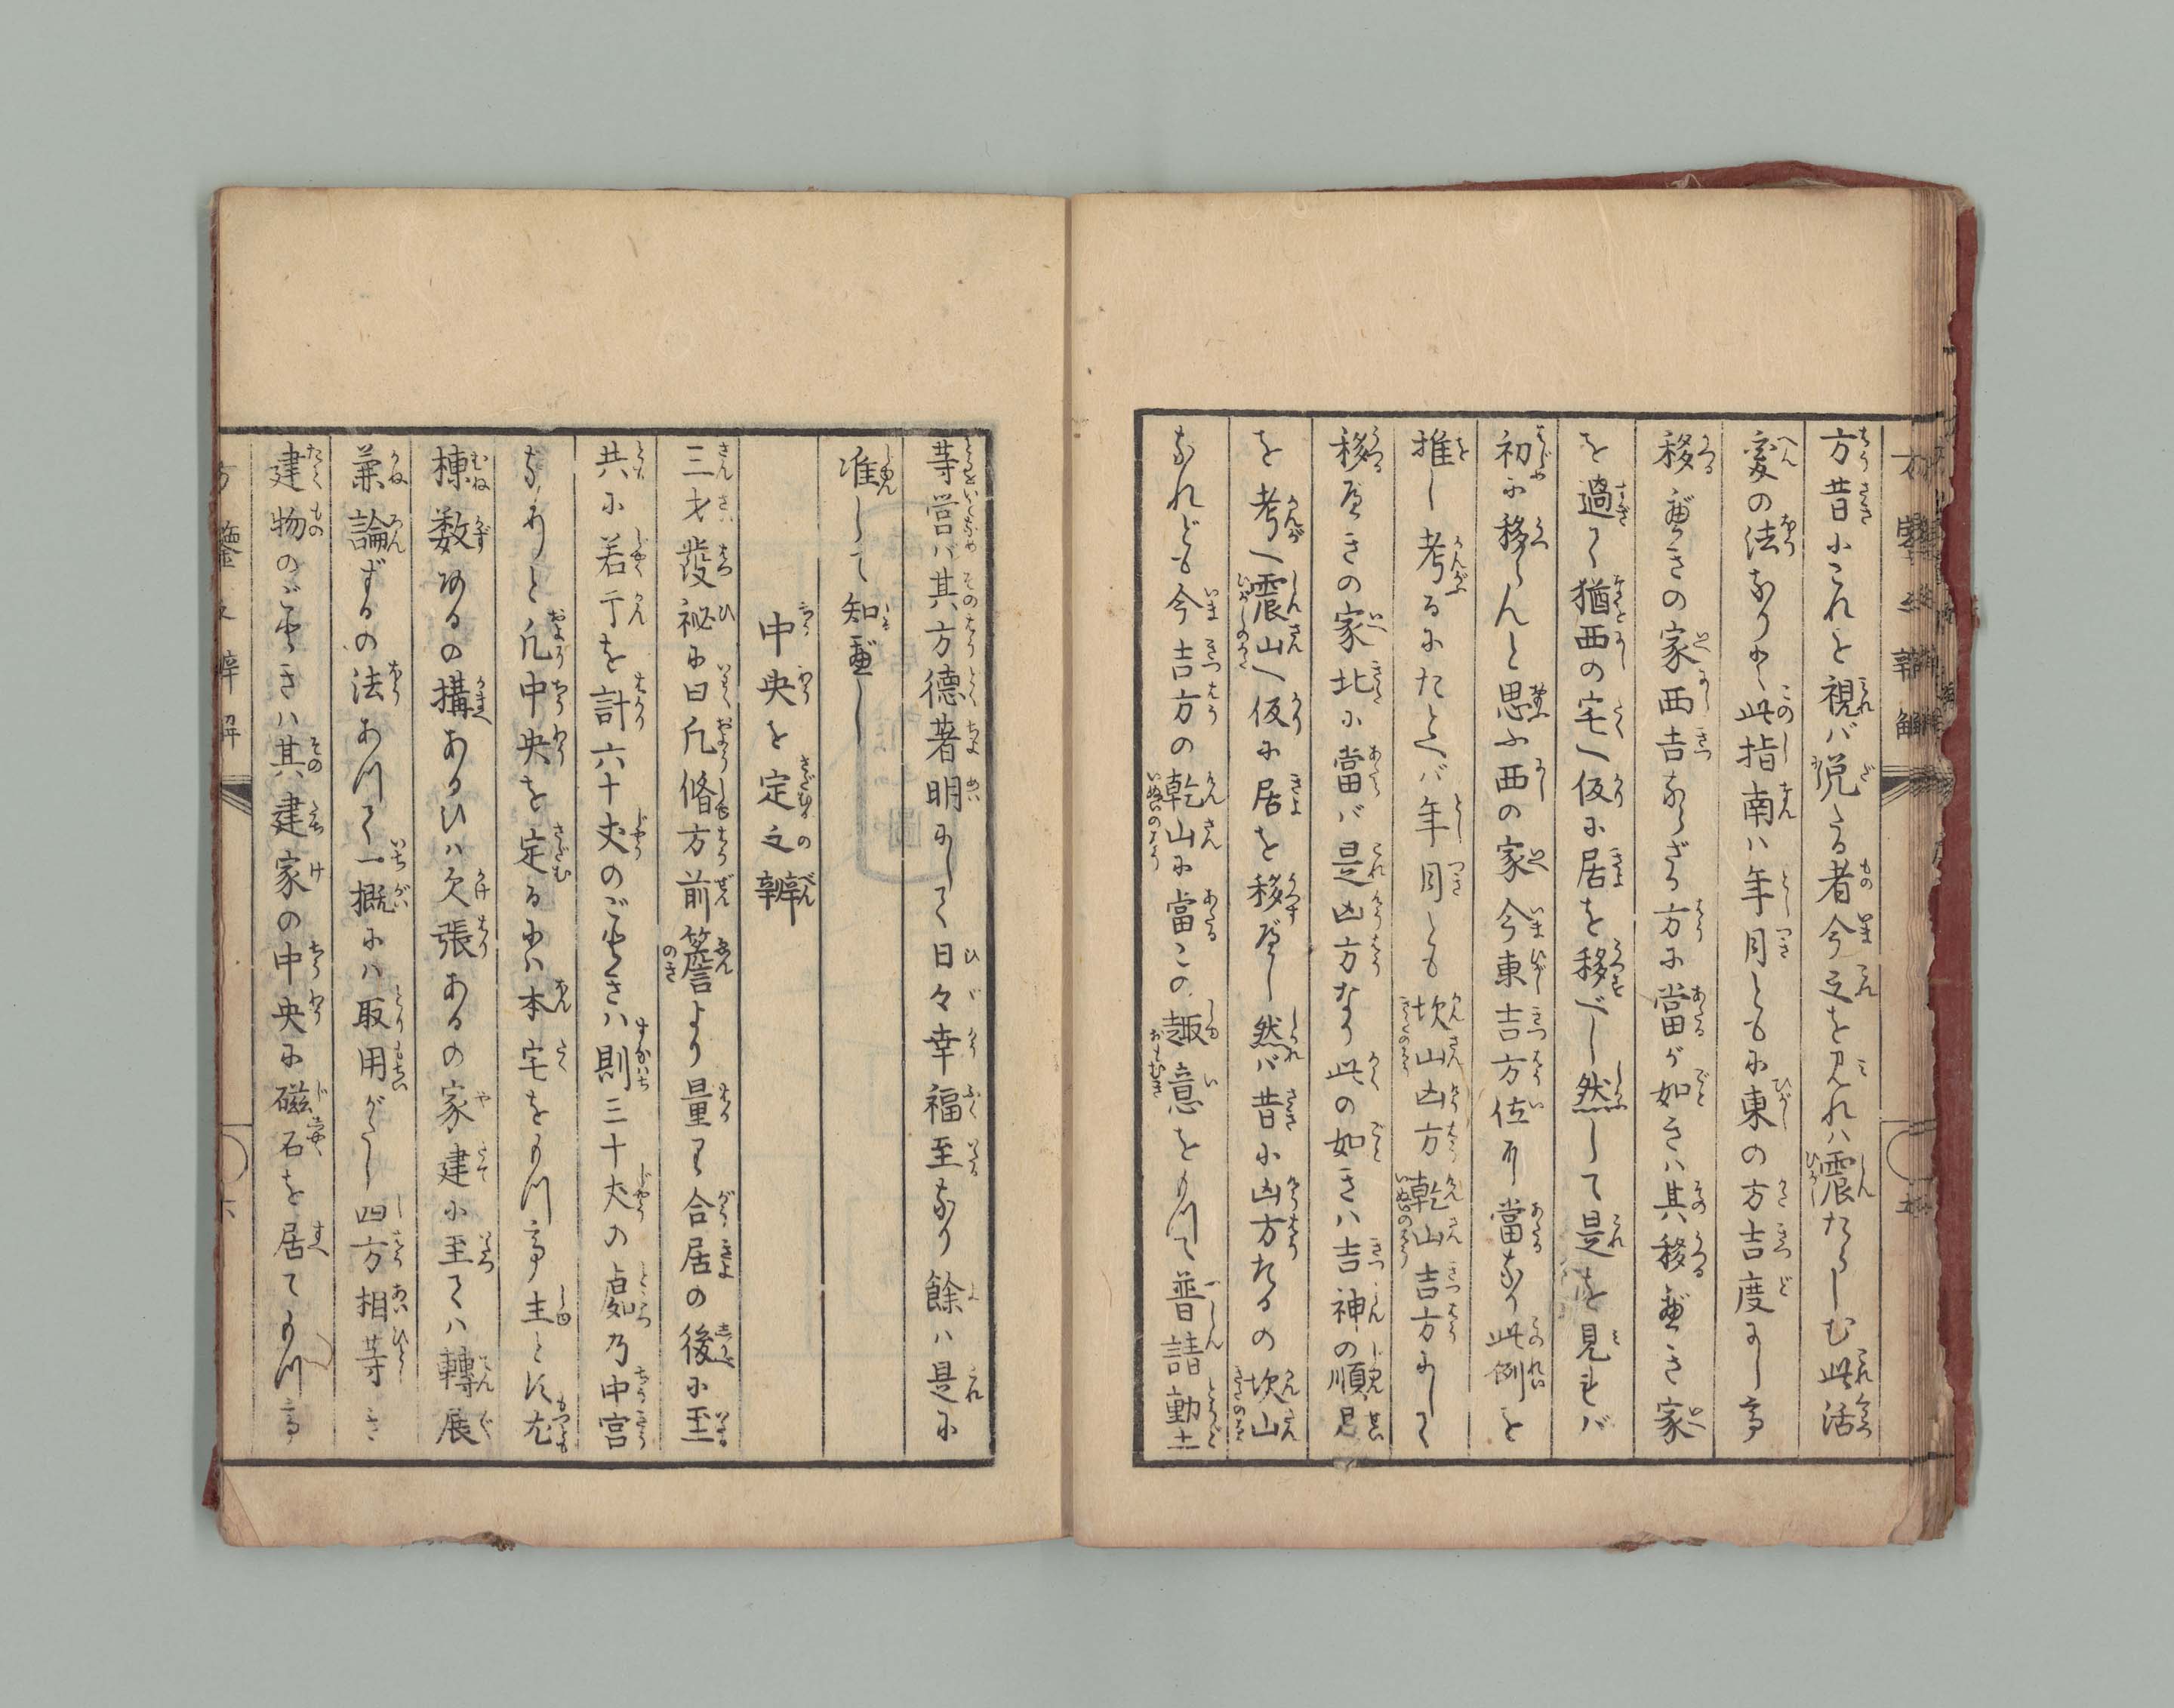 方昔にこれを視バ説ざる者今之を見れハ震たらしむ此活
変の法なり々此指南ハ年月ともに東の方吉度にし亨
移べきの家西吉ならざる方に當が如きハ其移べき家
を過て猶西の宅へ仮に居を移べし然して是を見もバ
初に移らんと思ふ西の家今東吉方位に當なり此例を
推し考るにたとへバ年月とも坎山凶方乾山吉方にして
移べきの家北に當バ是凶方なり此の如きハ吉神の順
を考へ震山へ仮に居を移べし然バ昔に凶方たるの坎山
なれども今吉方の乾山に當この趣意をもつて普請動土
等営バ其方徳著明にして日々幸福至なり餘ハ是に
准して知べし
中央を定之辨
三才發祕に曰凡脩方前簷より量り合居の後に至
共に若干を計六十丈のごときハ則三十丈の處乃中宮
なりと凡中央を定るにハ本宅をもつ亨主とに尤
棟数あるの搆あるひハ欠張あるの家建に至てハ轉展
兼論ずるの法あつて一概にハ取用がたし四方相等き
建物のごときハ其建家の中央に磁石を居てもつ亨